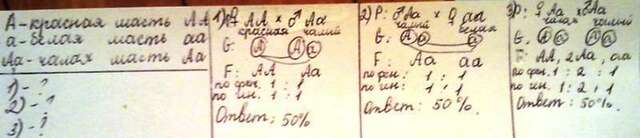 А-красная масть АА
а-белая масть аа
Аа-чалая масть Аа
1)-?
2)-?
3)-?
1) Р: ♀ АА × ♂ Аа
красная чалый
G: А А а
F: АА Аа
по фен. 1 : 1
по ген. 1 : 1
Ответ: 50%
2) Р: ♂Аа × ♀ аа
чалый белая
G: А а а
F: Аа аа
по фен: 1 : 1
по ген: 1 : 1
Ответ: 50%.
3) Р: ♀ Аа × ♂Аа
чалая чалый
G. А а А а
F: АА, 2Аа, аа
по фен. 1 : 2 : 1
по ген. 1 : 2 : 1
Ответ: 50%